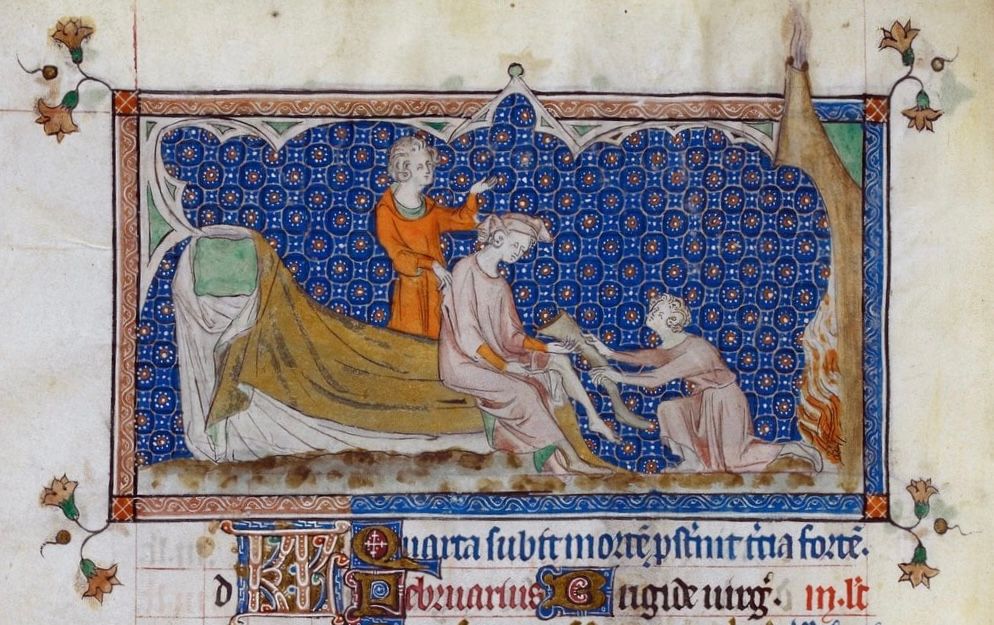 KL Quarta subit mortē p̄st̄nit t̄cia fortē.
d Februarius Brigide uirḡ. iii. lc̄